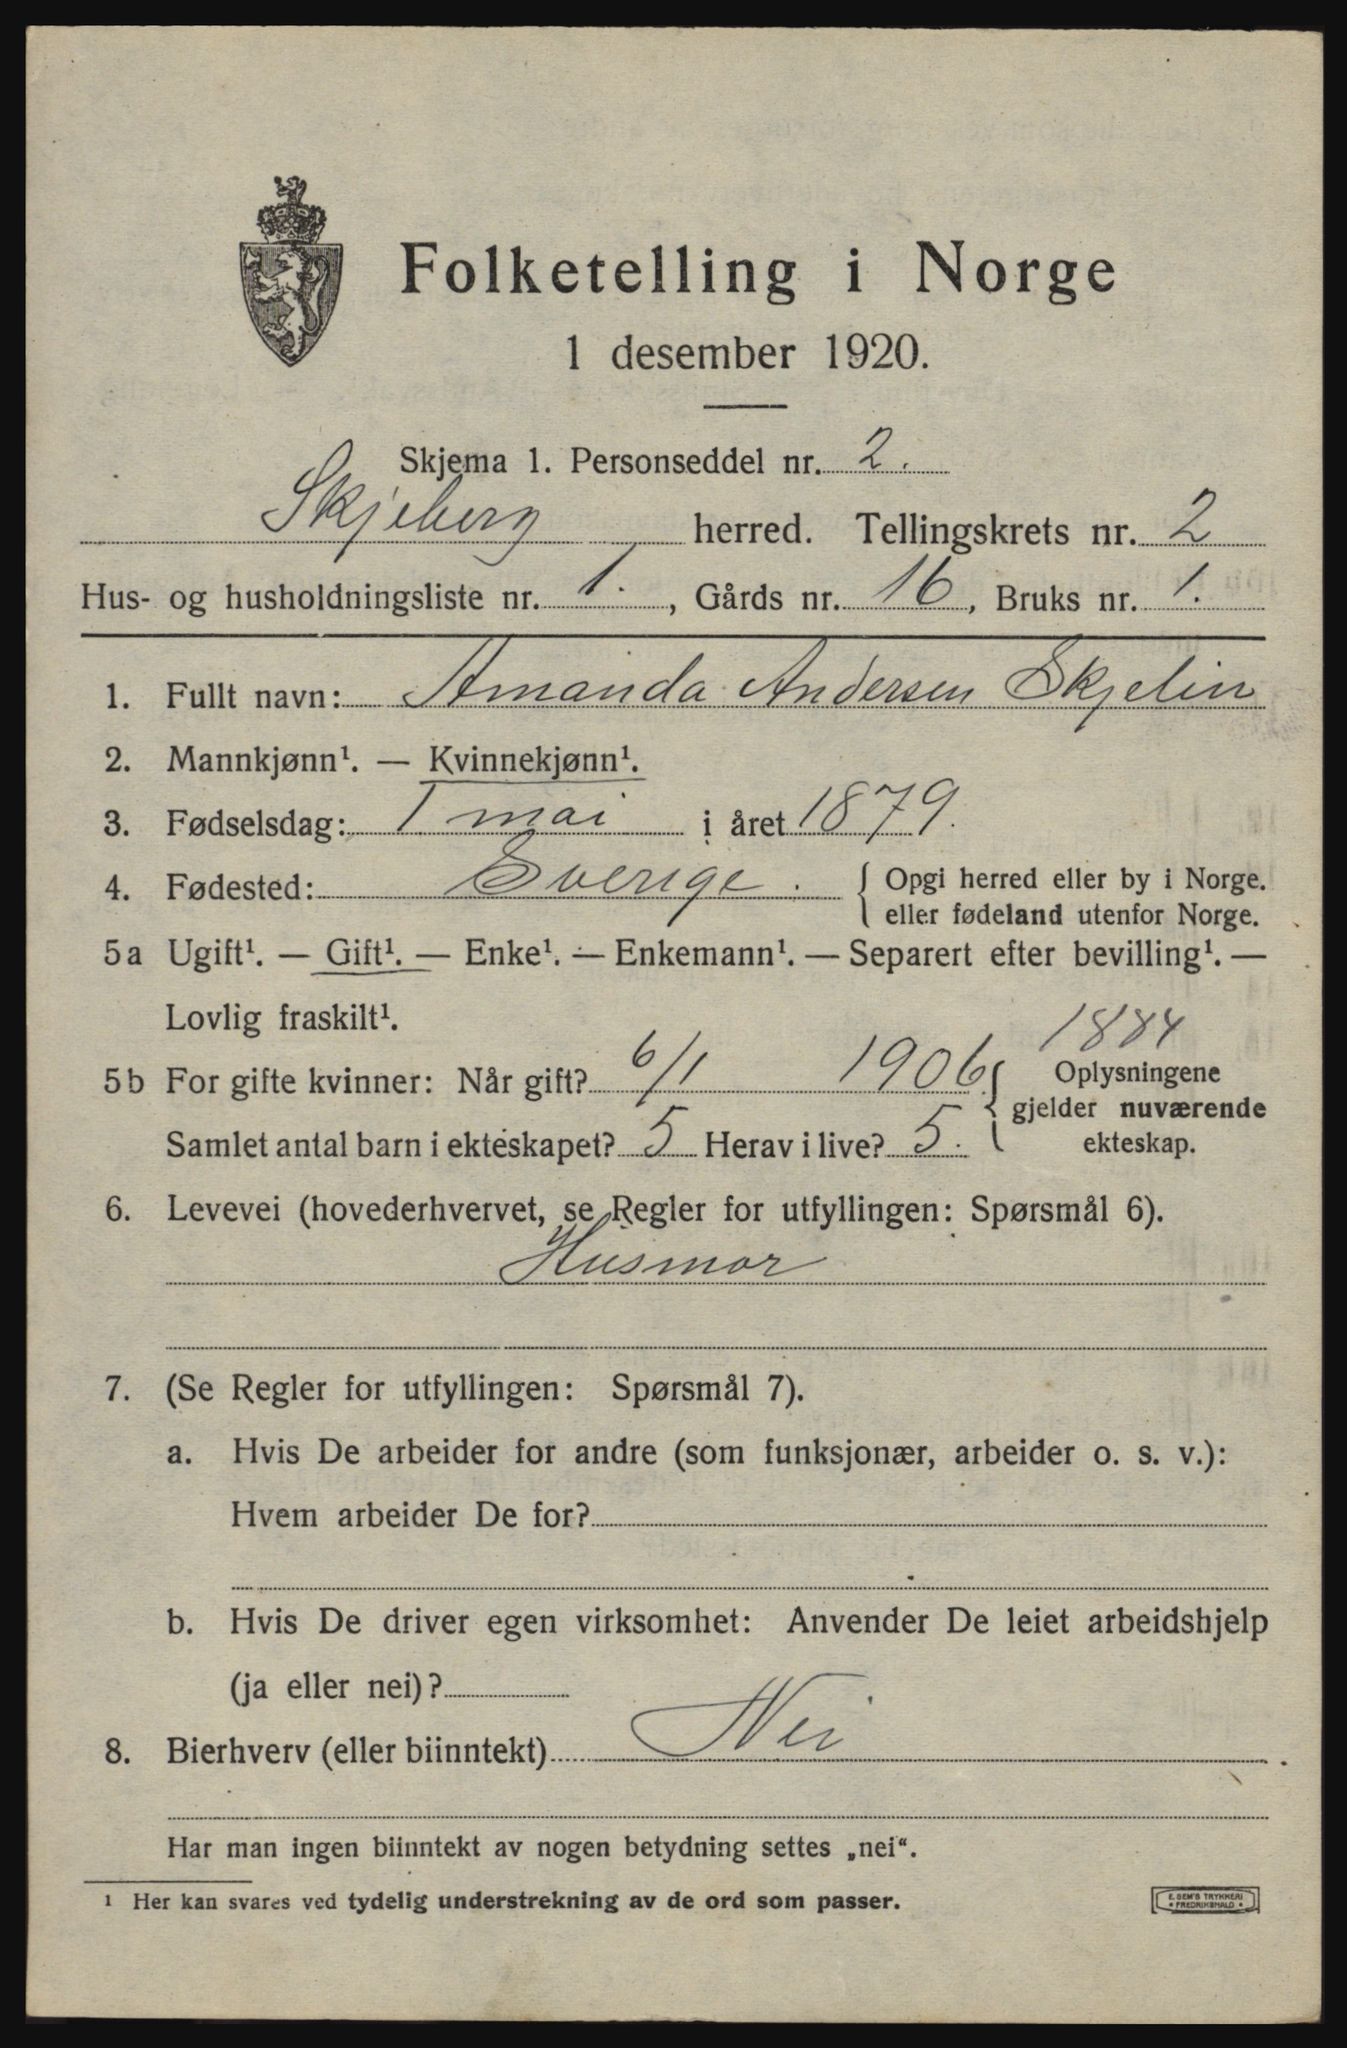 Folketelling i Norge
1 desember 1920.
Skjema 1. Personseddel nr. 2.
Skjeberg herred. Tellingskrets nr. 2
Hus- og husholdningsliste nr. 1., Gårds nr. 16, Bruks nr. 1.
1. Fullt navn: Amanda Andersen Skjelin
2. Mannkjønn¹. — Kvinnekjønn¹.
3. Fødselsdag: 1 mai i året 1879.
4. Fødested: Sverige. { Opgi herred eller by i Norge.
eller fødeland utenfor Norge.
5a Ugift¹. — Gift¹. — Enke¹. — Enkemann¹. — Separert efter bevilling¹. —
Lovlig fraskilt¹.
1884
5b For gifte kvinner: Når gift? 6/1 1906 { Oplysningene
gjelder nuværende
Samlet antal barn i ekteskapet? 5 Herav i live? 5. ekteskap.
6. Levevei (hovederhvervet, se Regler for utfyllingen: Spørsmål 6).
Husmor
7. (Se Regler for utfyllingen: Spørsmål 7).
a. Hvis De arbeider for andre (som funksjonær, arbeider o. s. v.):
Hvem arbeider De for?
b. Hvis De driver egen virksomhet: Anvender De leiet arbeidshjelp
(ja eller nei)?
8. Bierhverv (eller biinntekt) Nei
Har man ingen biinntekt av nogen betydning settes „nei“.
¹ Her kan svares ved tydelig understrekning av de ord som passer.
E. SEM'S TRYKKERI
• FREDRIKSHALD •